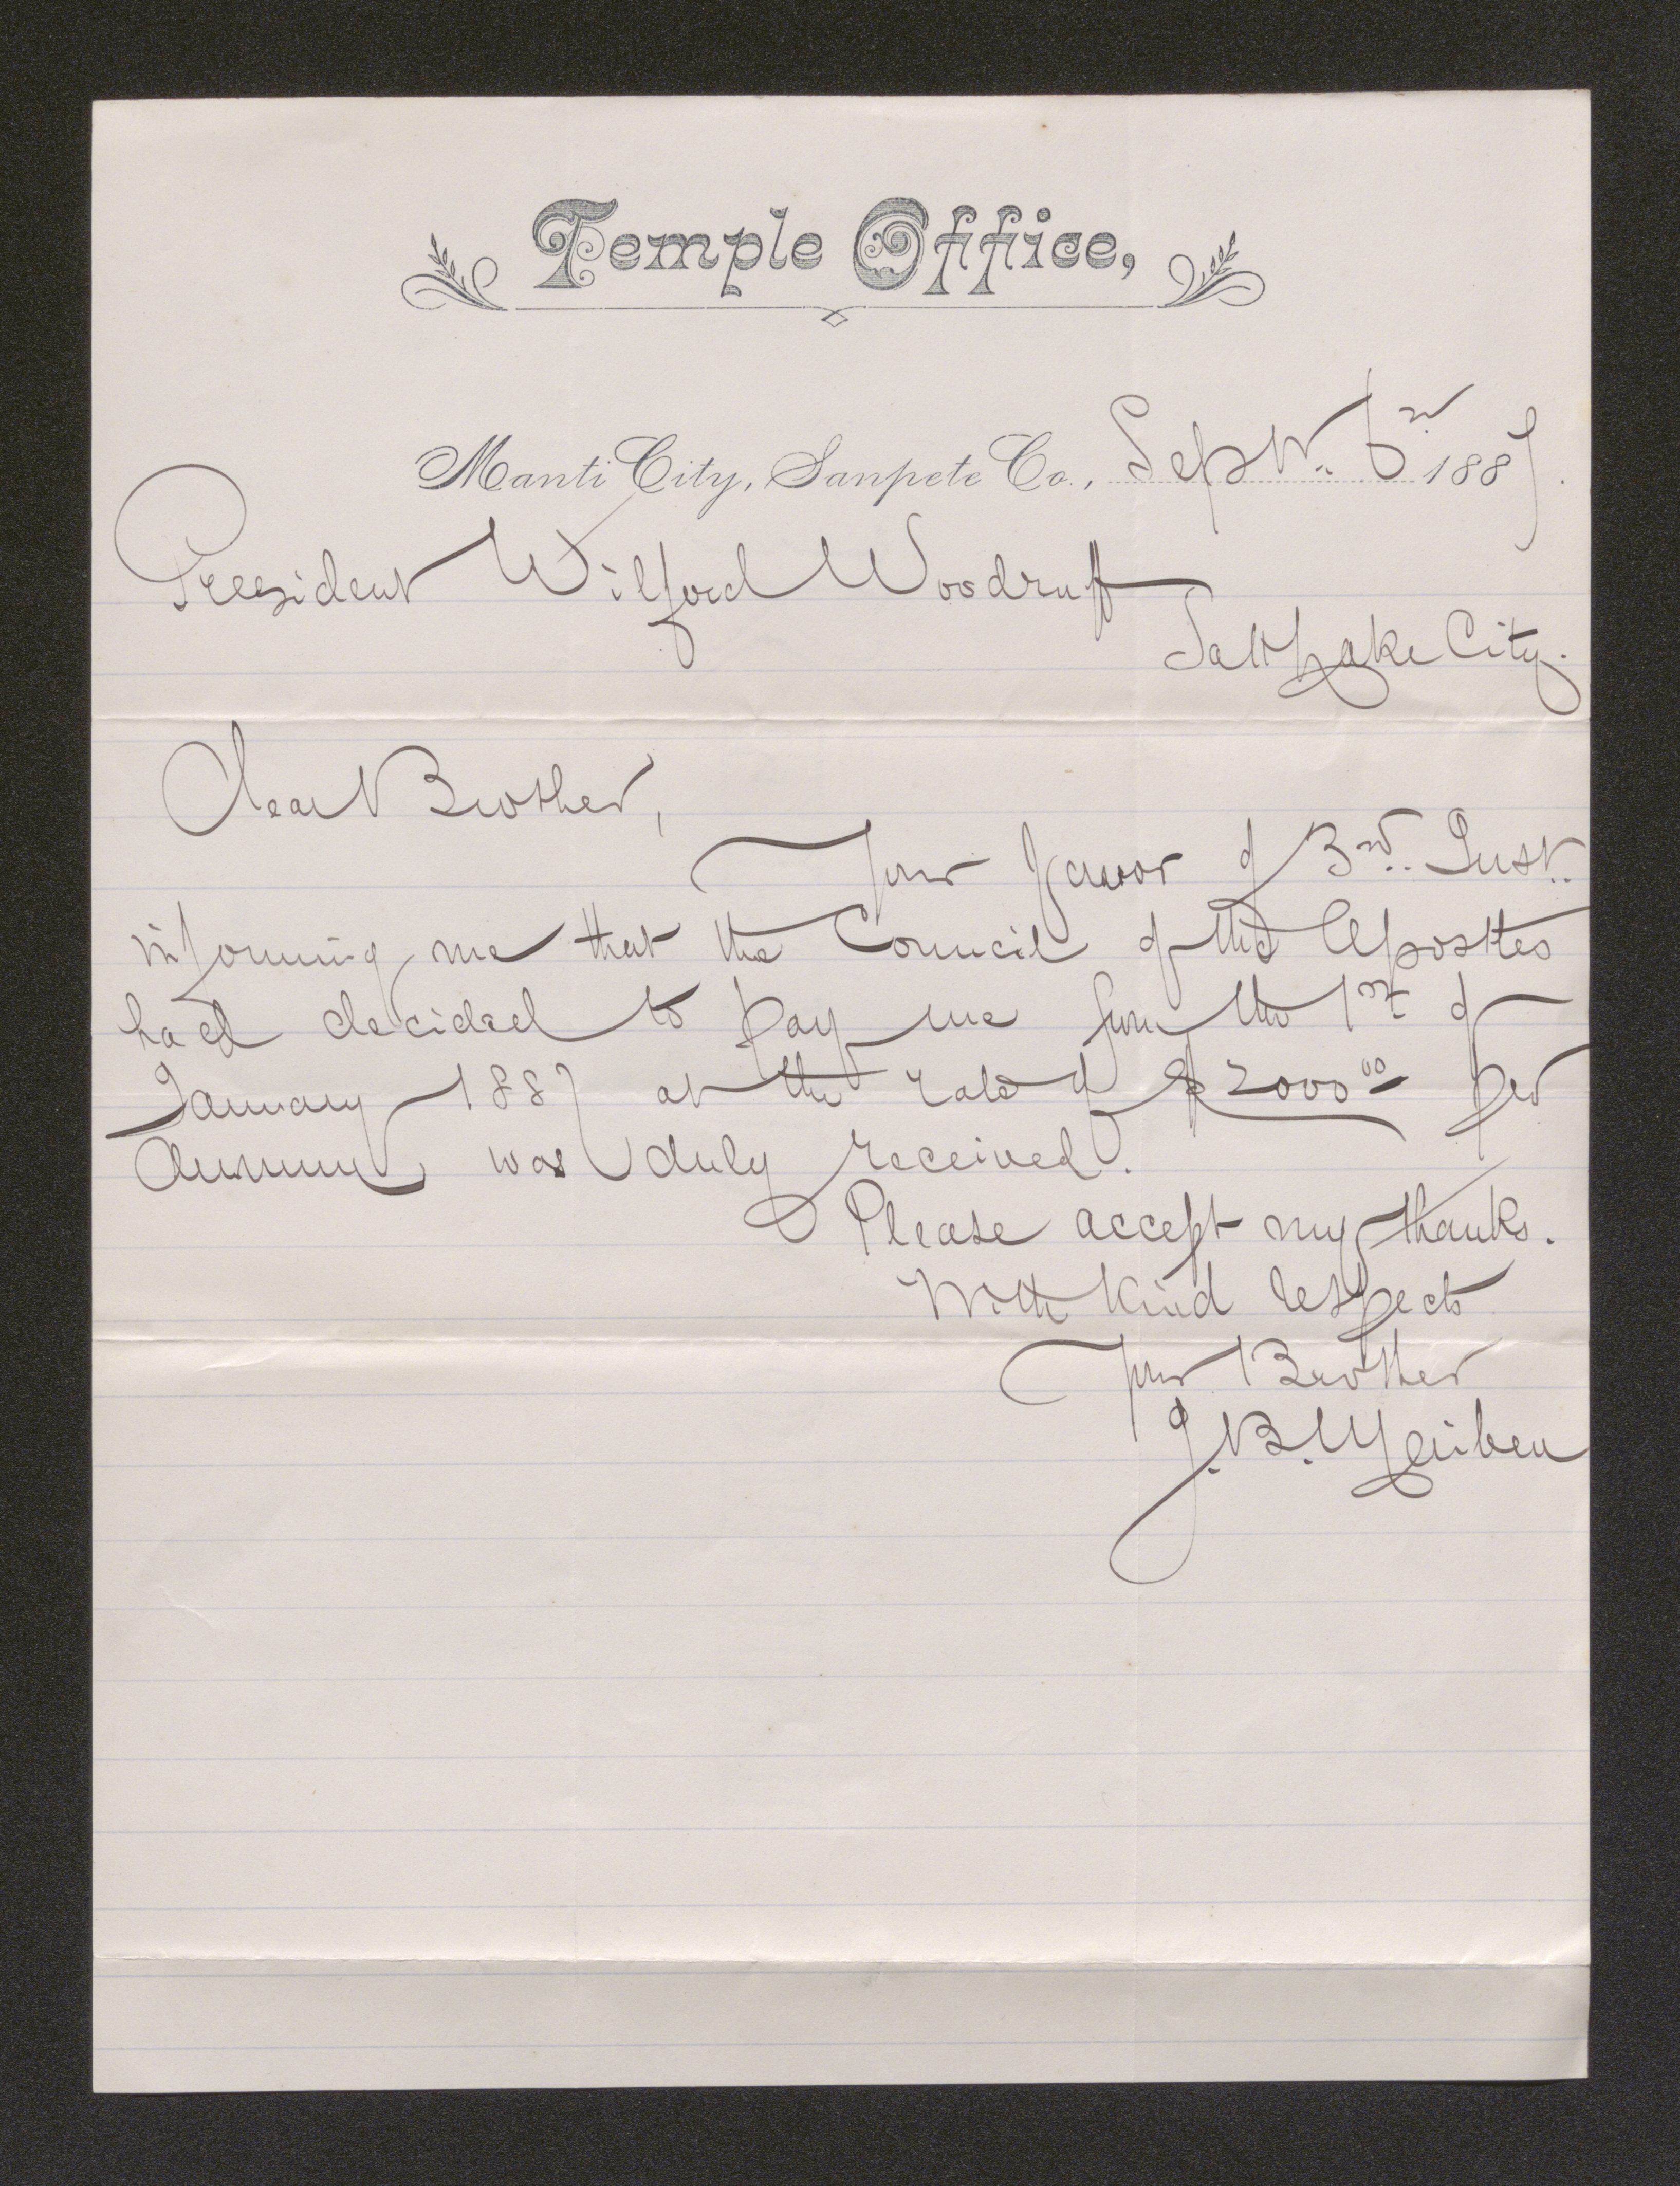 Temple Office,
Manti City, Sanpete Co., Sept. 6th 1887.
President Wilford Woodruff
Salt Lake City.
Dear Brother,
Your favor of 3rd. Inst.
informing me that the Council of the Apostles
had decided to pay me from the 1st of
January 1887 at the rate of $2000 00 per
Annum was duly received.
Please accept my thanks.
With Kind respects
Your Brother
J. B. Maiben